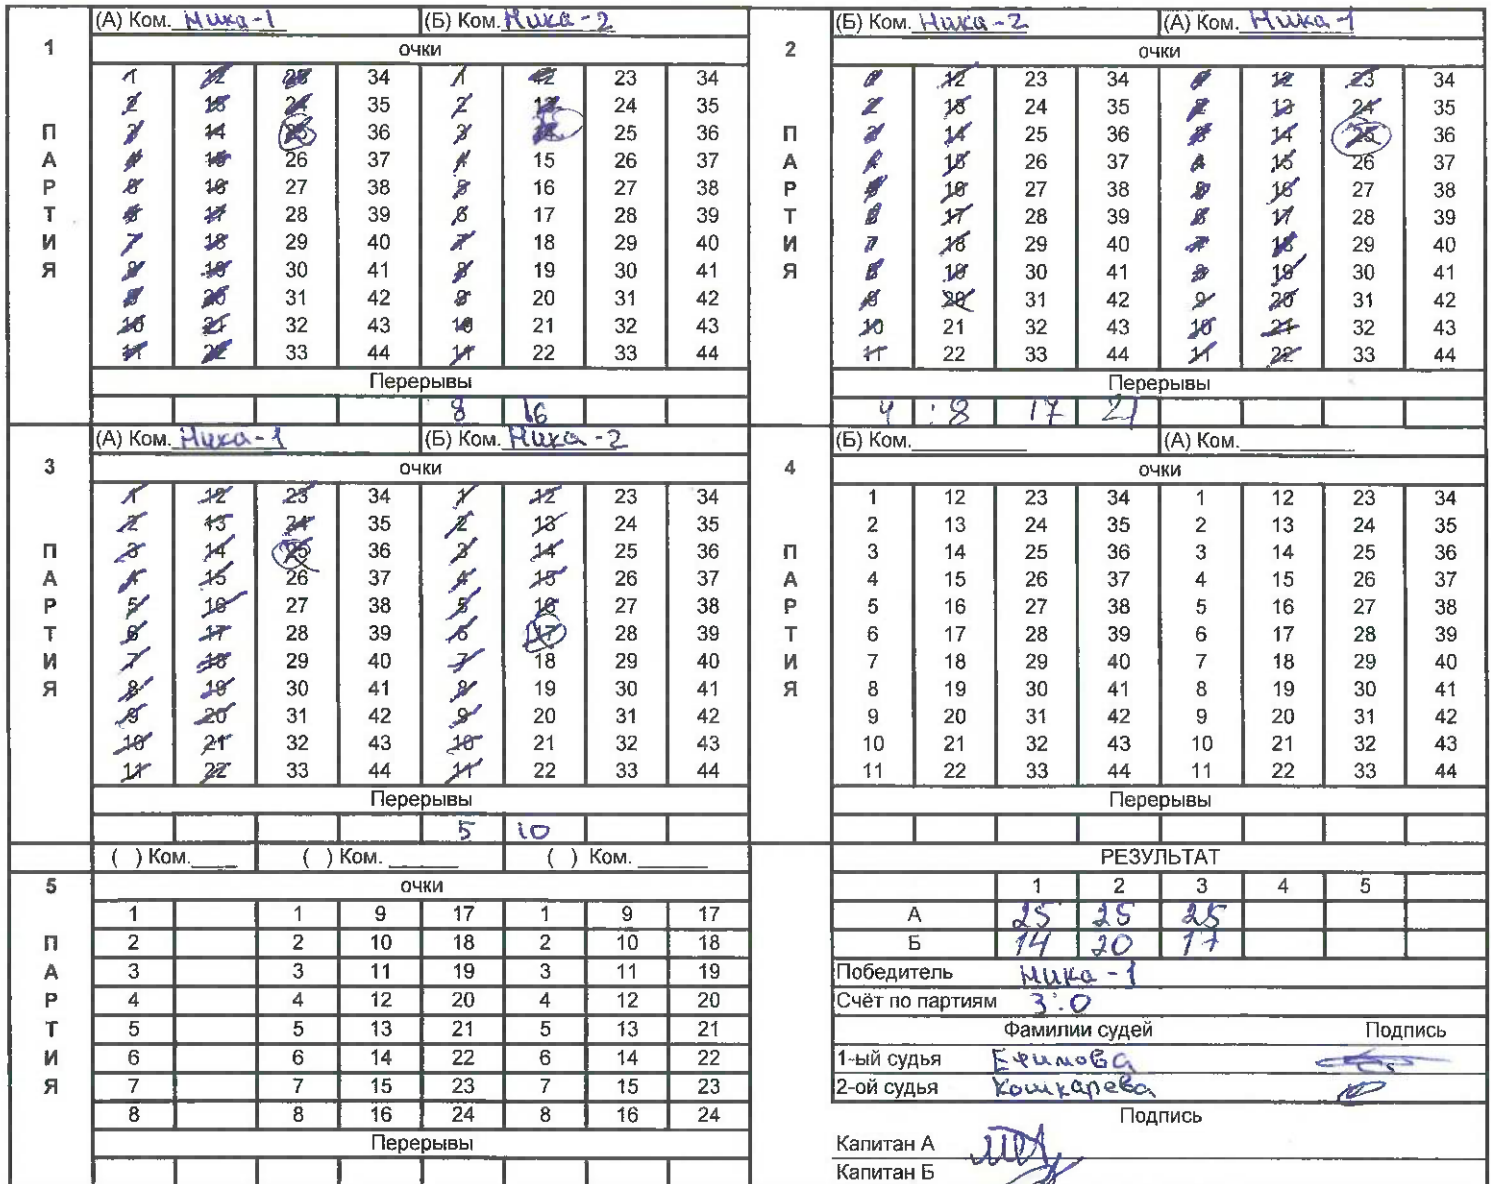 (А) Ком. Ника-1 (Б) Ком. Ника-2
1 очки
1 12 23 34 1 12 23 34
2 13 24 35 2 13 24 35
П 3 14 25 36 3 14 25 36
А 4 15 26 37 4 15 26 37
Р 5 16 27 38 5 16 27 38
Т 6 17 28 39 6 17 28 39
И 7 18 29 40 7 18 29 40
Я 8 19 30 41 8 19 30 41
9 20 31 42 9 20 31 42
10 21 32 43 10 21 32 43
11 22 33 44 11 22 33 44
Перерывы
8 16
(Б) Ком. Ника-2 (А) Ком. Ника-1
2 очки
1 12 23 34 1 12 23 34
2 13 24 35 2 13 24 35
П 3 14 25 36 3 14 25 36
А 4 15 26 37 4 15 26 37
Р 5 16 27 38 5 16 27 38
Т 6 17 28 39 6 17 28 39
И 7 18 29 40 7 18 29 40
Я 8 19 30 41 8 19 30 41
9 20 31 42 9 20 31 42
10 21 32 43 10 21 32 43
11 22 33 44 11 22 33 44
Перерывы
4 : 8 17 21
(А) Ком. Ника-1 (Б) Ком. Ника-2
3 очки
1 12 23 34 1 12 23 34
2 13 24 35 2 13 24 35
П 3 14 25 36 3 14 25 36
А 4 15 26 37 4 15 26 37
Р 5 16 27 38 5 16 27 38
Т 6 17 28 39 6 17 28 39
И 7 18 29 40 7 18 29 40
Я 8 19 30 41 8 19 30 41
9 20 31 42 9 20 31 42
10 21 32 43 10 21 32 43
11 22 33 44 11 22 33 44
Перерывы
5 10
(Б) Ком. (А) Ком.
4 очки
1 12 23 34 1 12 23 34
2 13 24 35 2 13 24 35
П 3 14 25 36 3 14 25 36
А 4 15 26 37 4 15 26 37
Р 5 16 27 38 5 16 27 38
Т 6 17 28 39 6 17 28 39
И 7 18 29 40 7 18 29 40
Я 8 19 30 41 8 19 30 41
9 20 31 42 9 20 31 42
10 21 32 43 10 21 32 43
11 22 33 44 11 22 33 44
Перерывы
( ) Ком. ( ) Ком. ( ) Ком.
5 очки
1 1 9 17 1 9 17
П 2 2 10 18 2 10 18
А 3 3 11 19 3 11 19
Р 4 4 12 20 4 12 20
Т 5 5 13 21 5 13 21
И 6 6 14 22 6 14 22
Я 7 7 15 23 7 15 23
8 8 16 24 8 16 24
Перерывы
РЕЗУЛЬТАТ
1 2 3 4 5
А 25 25 25
Б 14 20 17
Победитель Ника-1
Счёт по партиям 3:0
Фамилии судей Подпись
1-ый судья Ефимова
2-ой судья Кошкарева
Подпись
Капитан А
Капитан Б